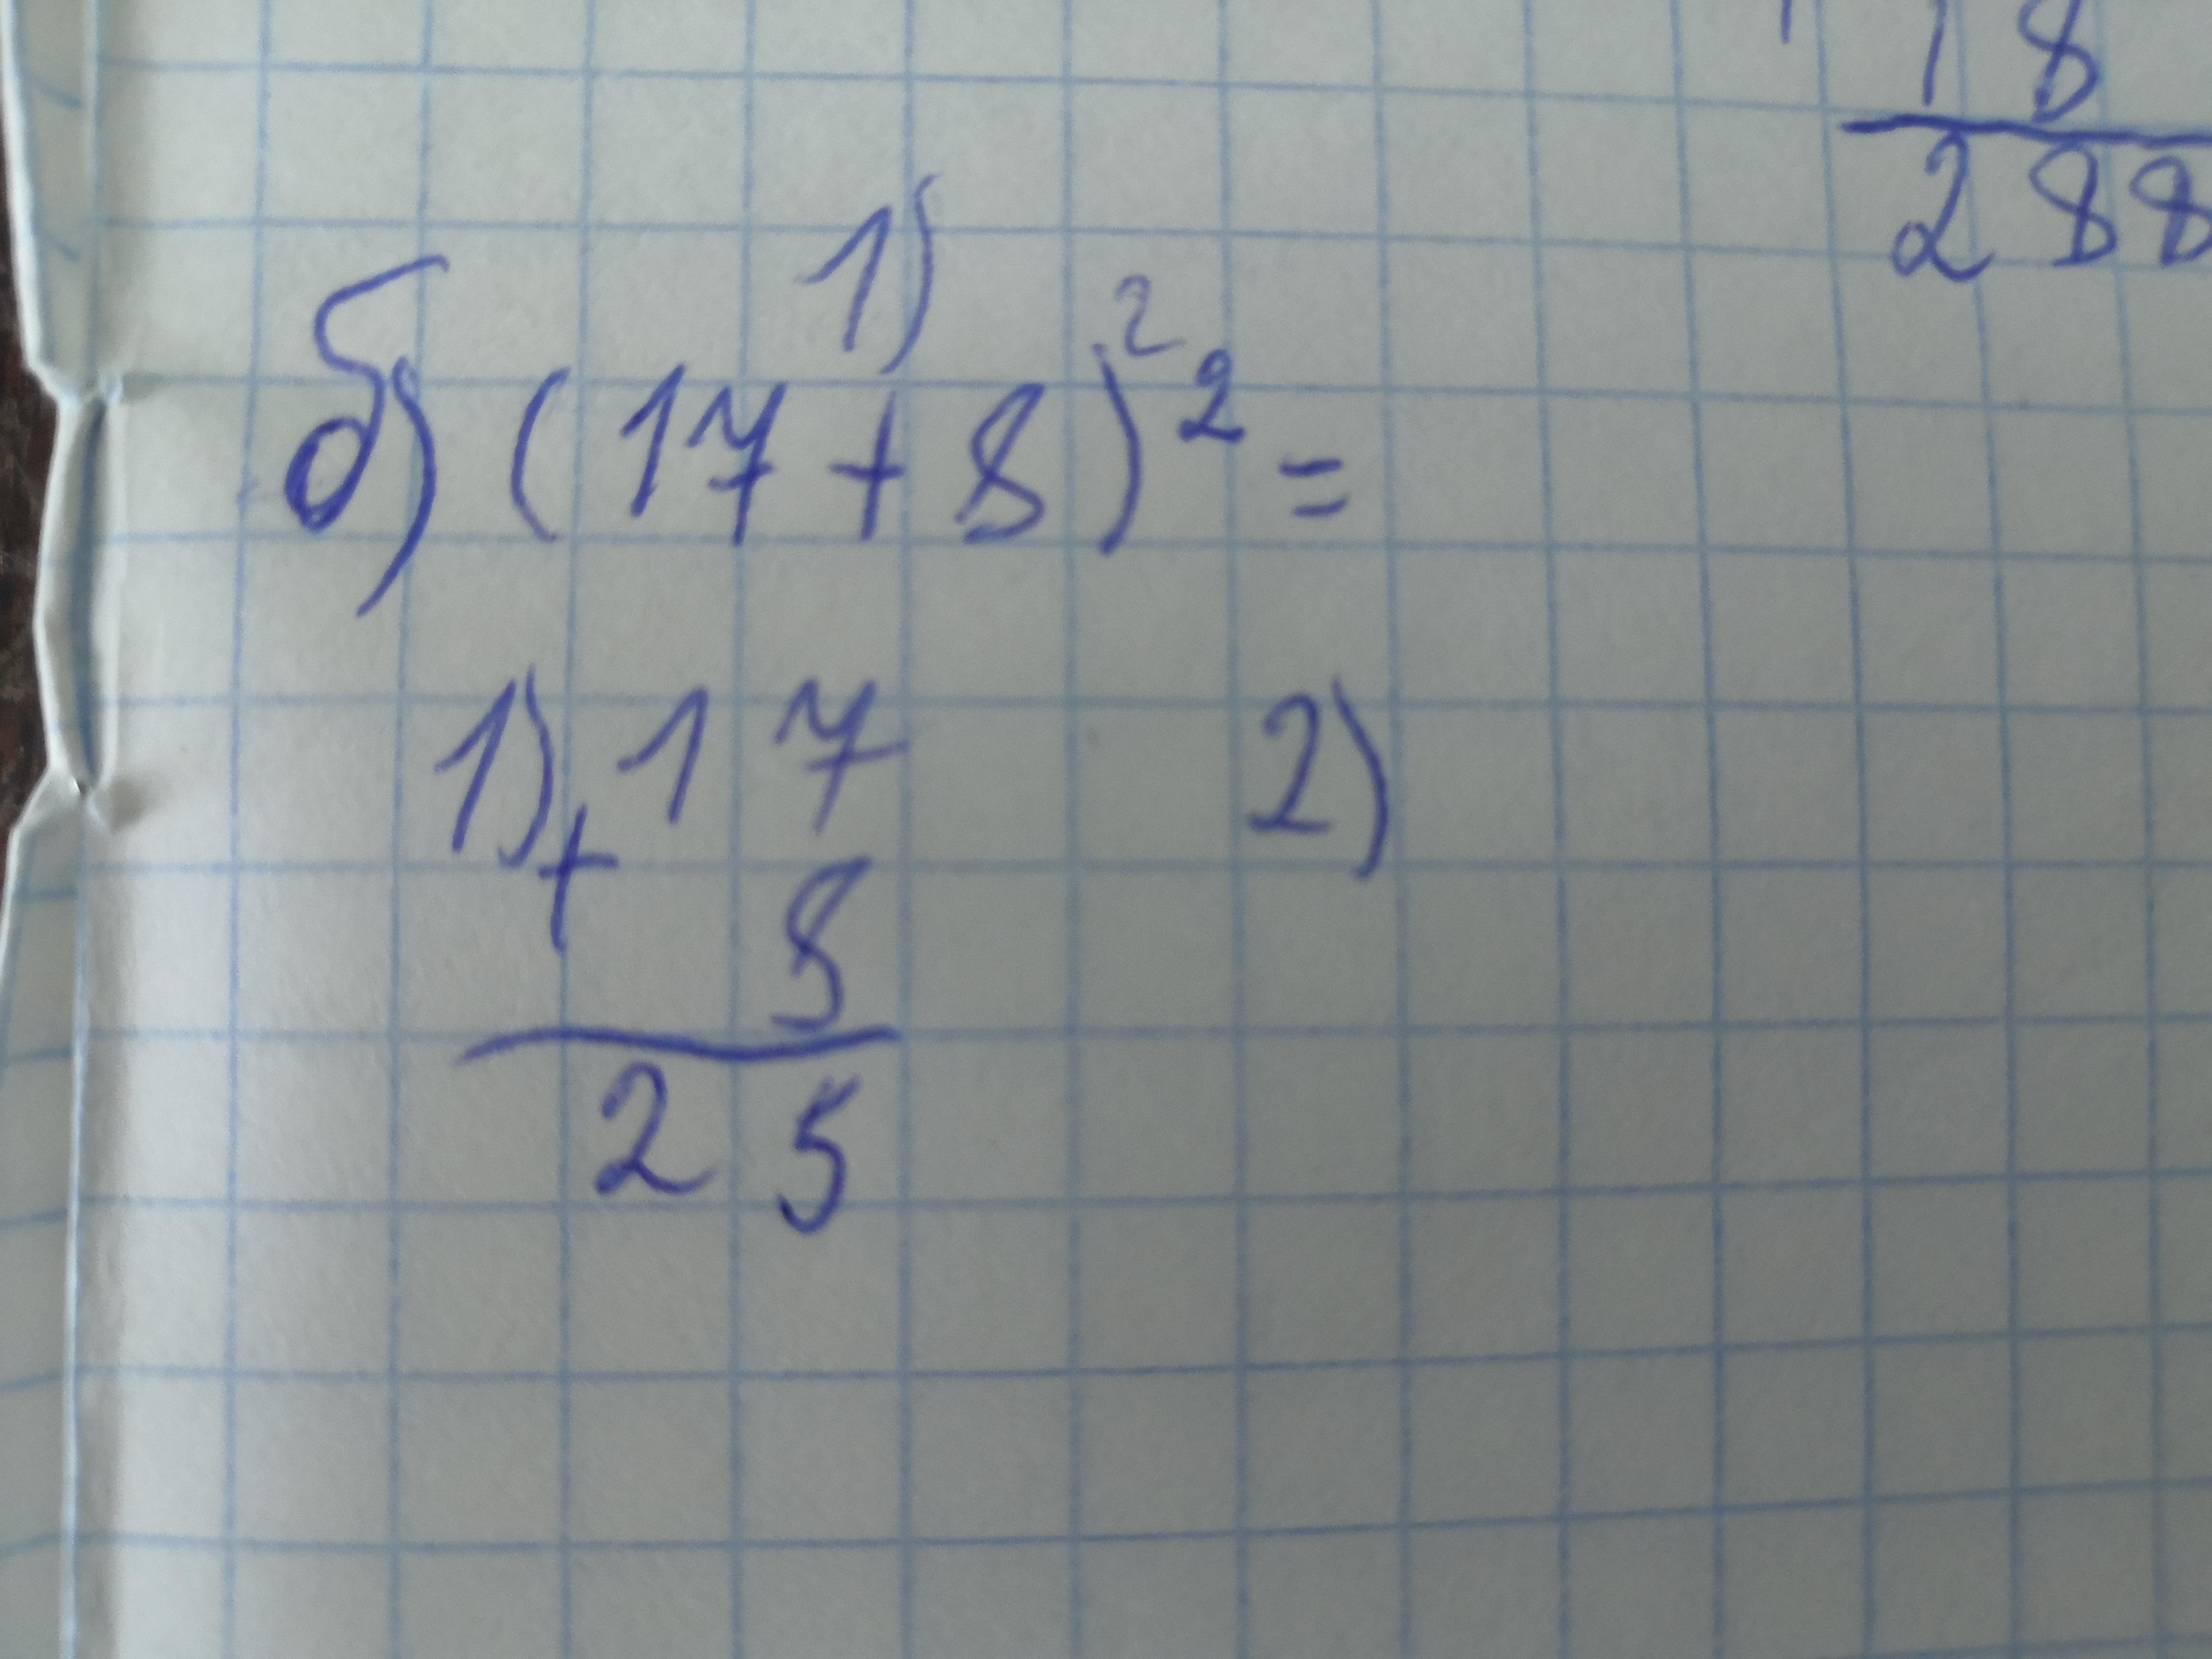 18
288
1) 2
б) (17+8)² =
1) 17 2)
+
8
25